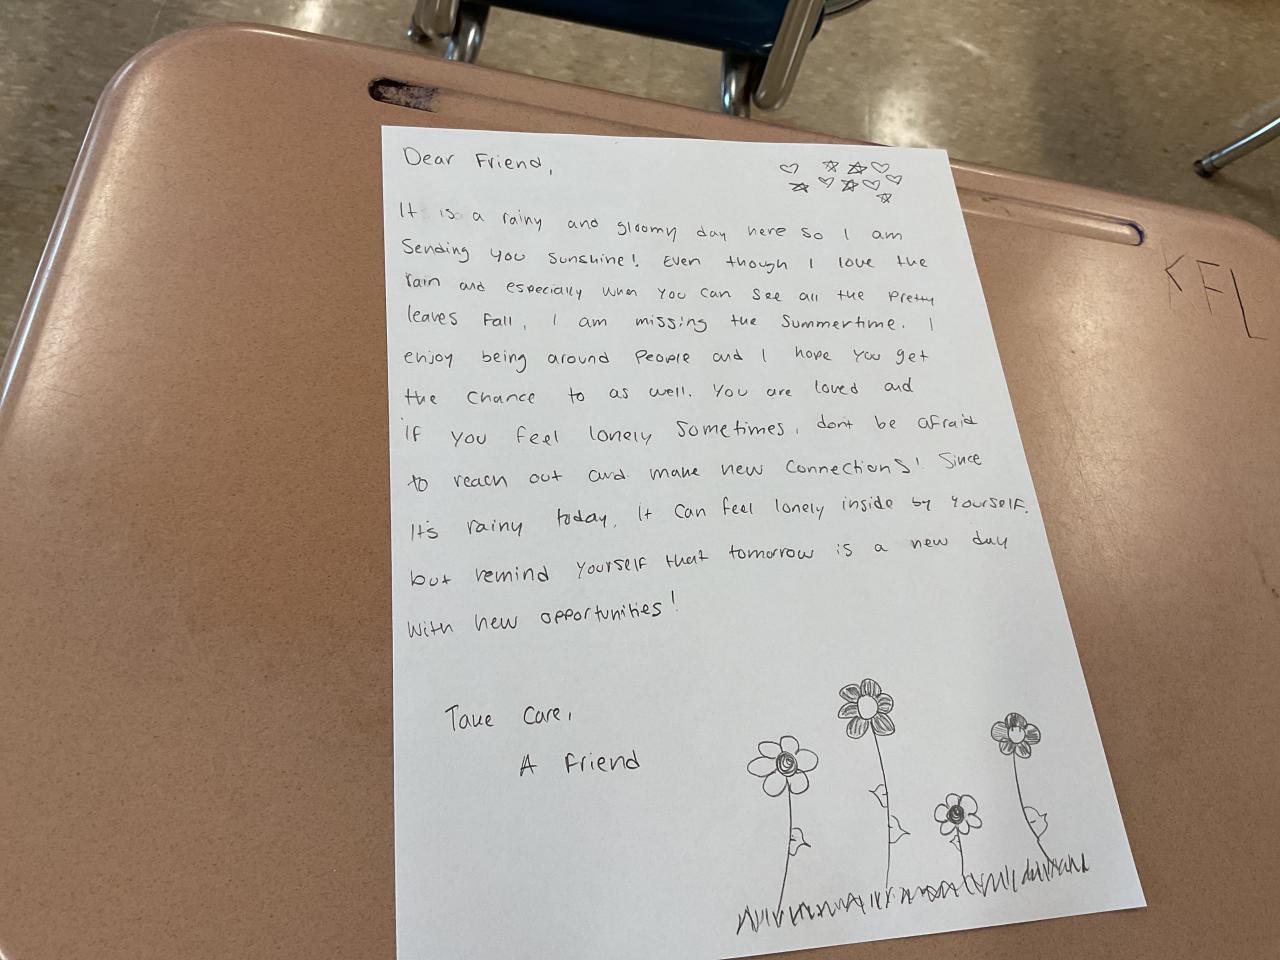 Dear Friend,
It is a rainy and gloomy day here so I am
sending you sunshine! Even though I love the
rain and especially when you can see all the pretty
leaves fall, I am missing the summertime. I
enjoy being around people and I hope you get
the chance to as well. You are loved and
if you feel lonely sometimes, dont be afraid
to reach out and make new connections! Since
it's rainy today, it can feel lonely inside by yourself.
but remind yourself that tomorrow is a new day
with new opportunities!
Take care,
A friend
KFL